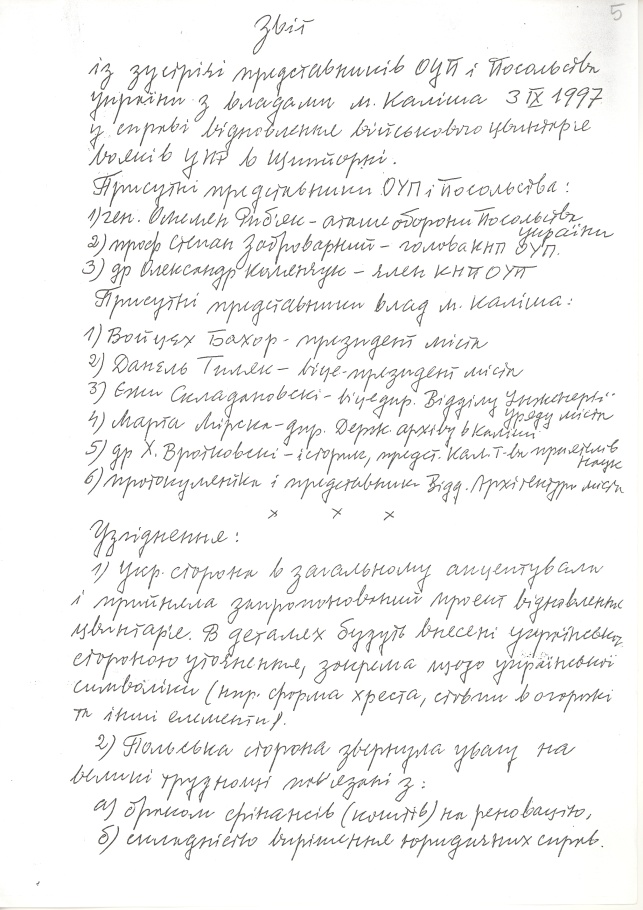 5
Звіт
із зустрічі представників ОУП і Посольства
України з владами м. Каліша 3 IX 1997
у справі відновлення військового цвинтаря
вояків УНР в Щипіорні.
Присутні представники ОУП і Посольства:
1) ген. Омелян - аташе оборони Посольства
України
2) проф Степан Заброварний - голова КНП ОУП.
3) др Олександр Колянчук - член КНП ОУП
Присутні представники влад м. Каліша:
1) Войцех Бахор - президент міста
2) Данєль Тиляк - віце-президент міста
3) Єжи Складановскі - віцедир. Відділу Інженерії
Уряду міста
4) Марта Мірска - дир. Держ. архіву в Каліші
5) др Х. Вротковскі - історик, предст. Кал. Т-ва приятелів
Наук
6) протокулянтка і представник Відд. Архітектури міста
x x x
Узгіднення:
1) Укр. сторона в загальному акцептувала
і прийняла запропонований проєкт відновлення
цвинтаря. В деталях будуть внесені українською
стороною уточнення, зокрема щодо української
символіки (нпр. форма хреста, стовпи в огорожі
та інші елементи).
2) Польська сторона звернула увагу на
великі труднощі пов'язані з:
а) браком фінансів (коштів) на реновацію,
б) складністю вирішення юридичних справ.